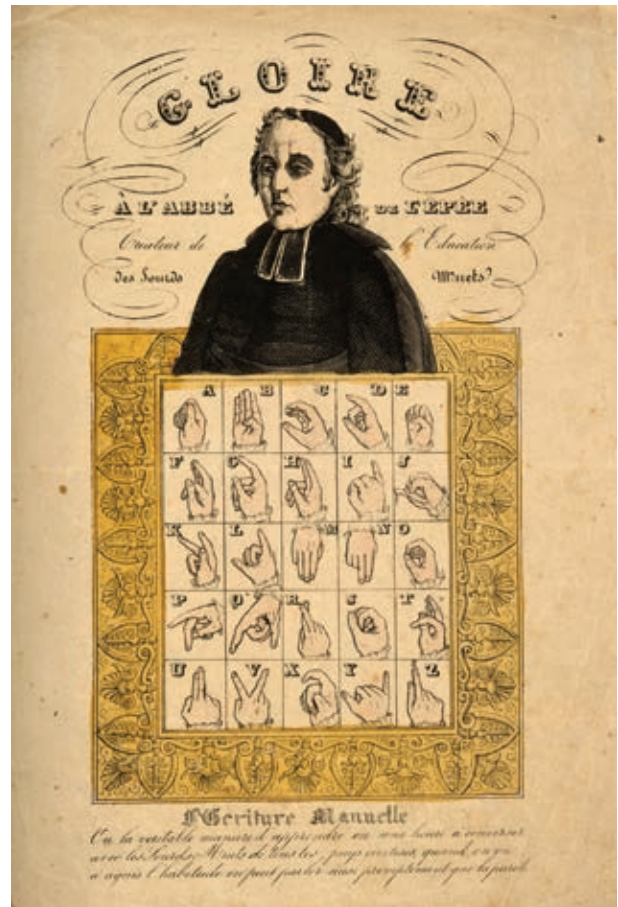 GLOIRE
À L'ABBÉ DE L'EPÉE
Createur de l'Education
des Sourds Muets
A B C D E
F G H I J
K L M N O
P Q R S T
U V X Y Z
l'Ecriture Manuelle
Ou la veritable maniere d'apprendre en une heure a converser
avec les Sourds Muets de tous les pays quand on en
a acquis l'habitude on peut parler aussi promptement que la parole